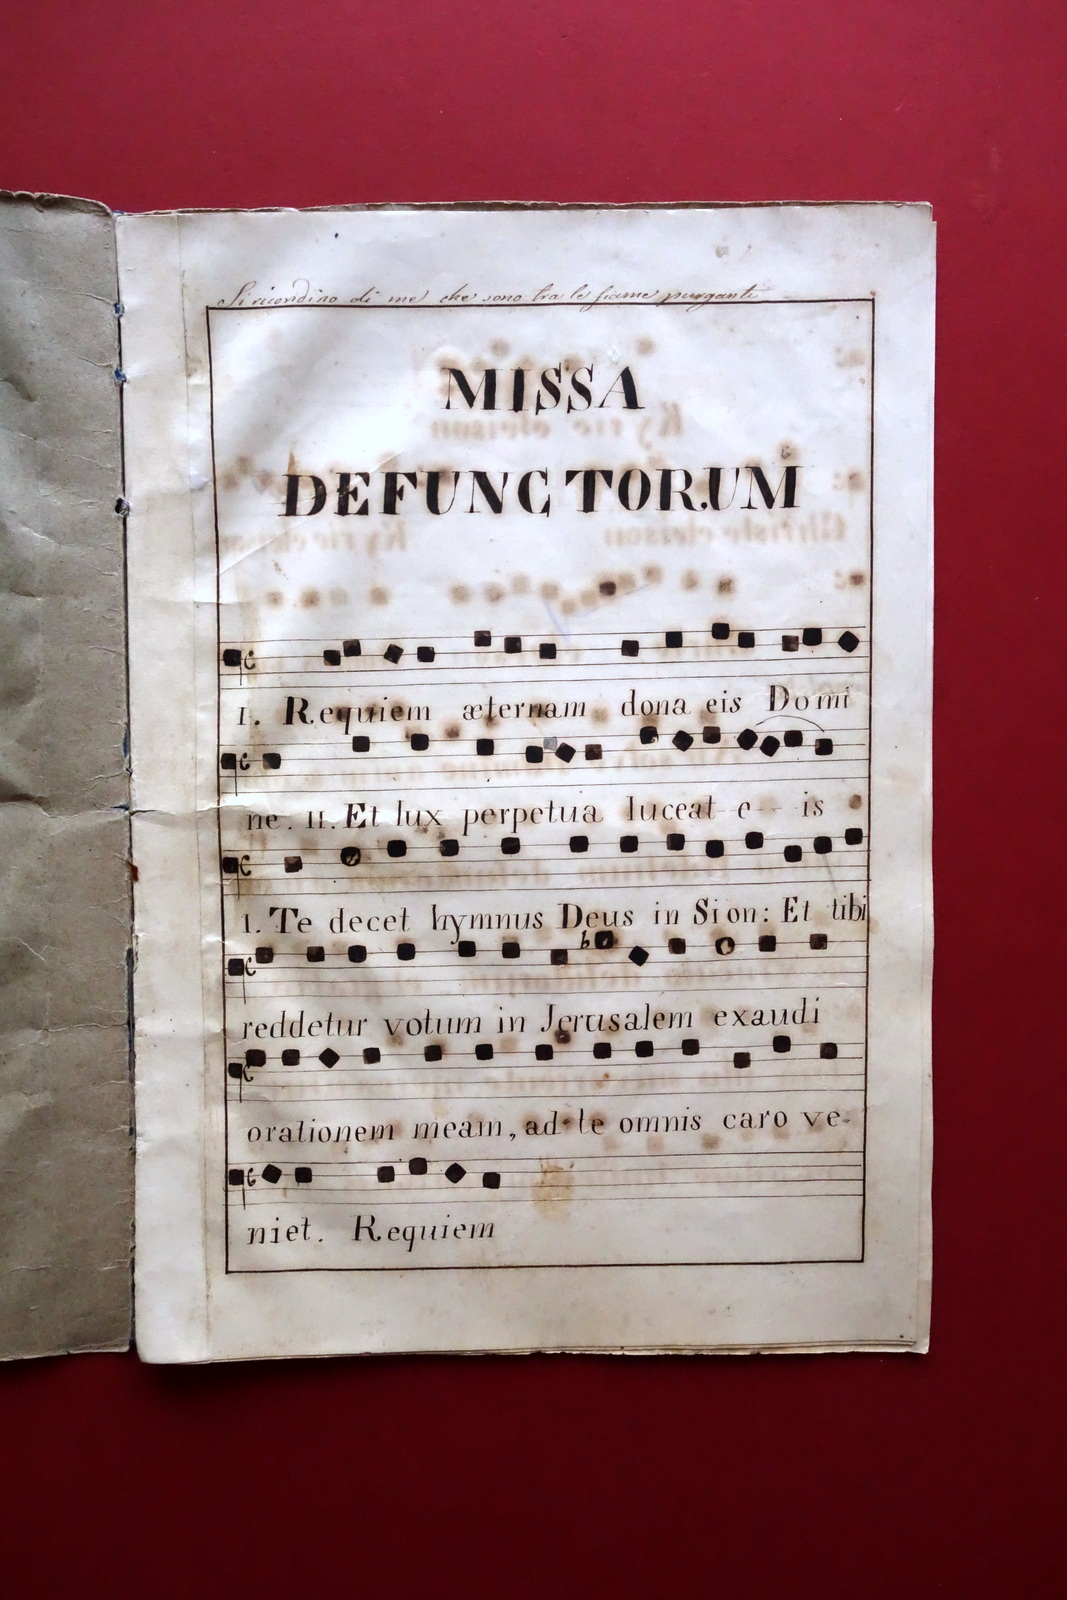 Si ricordino di me che sono tra le fiame purganti
MISSA
DEFUNCTORUM
I. Requiem æternam dona eis Domi
ne. II. Et lux perpetua luceat e-- is
I. Te decet hymnus Deus in Sion: Et tibi
reddetur votum in Jerusalem exaudi
orationem meam, ad te omnis caro ve-
niet. Requiem